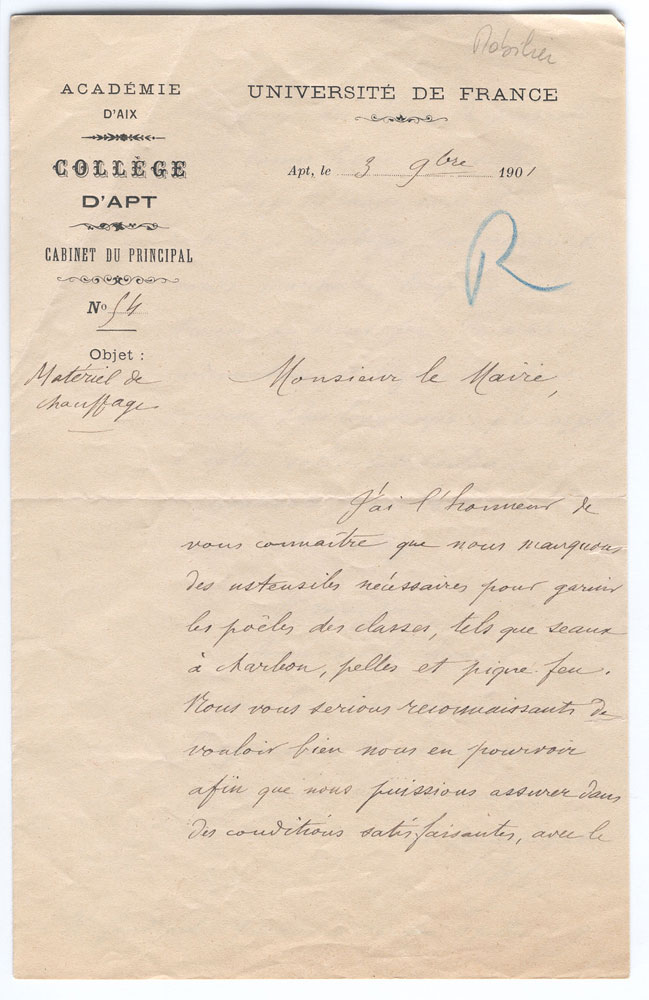 Mobilier
ACADÉMIE
D'AIX
COLLÈGE
D'APT
CABINET DU PRINCIPAL
No 54
Objet :
Matériel de
chauffage
UNIVERSITÉ DE FRANCE
Apt, le 3 9bre 1901
R
Monsieur le Maire,
J'ai l'honneur de
vous connaître que nous manquons
des ustensiles nécessaires pour garnir
les poêles des classes, tels que seaux
à charbon, pelles et pique feu.
Nous vous serions reconnaissants de
vouloir bien nous en pourvoir
afin que nous puissions assurer dans
des conditions satisfaisantes, avec le